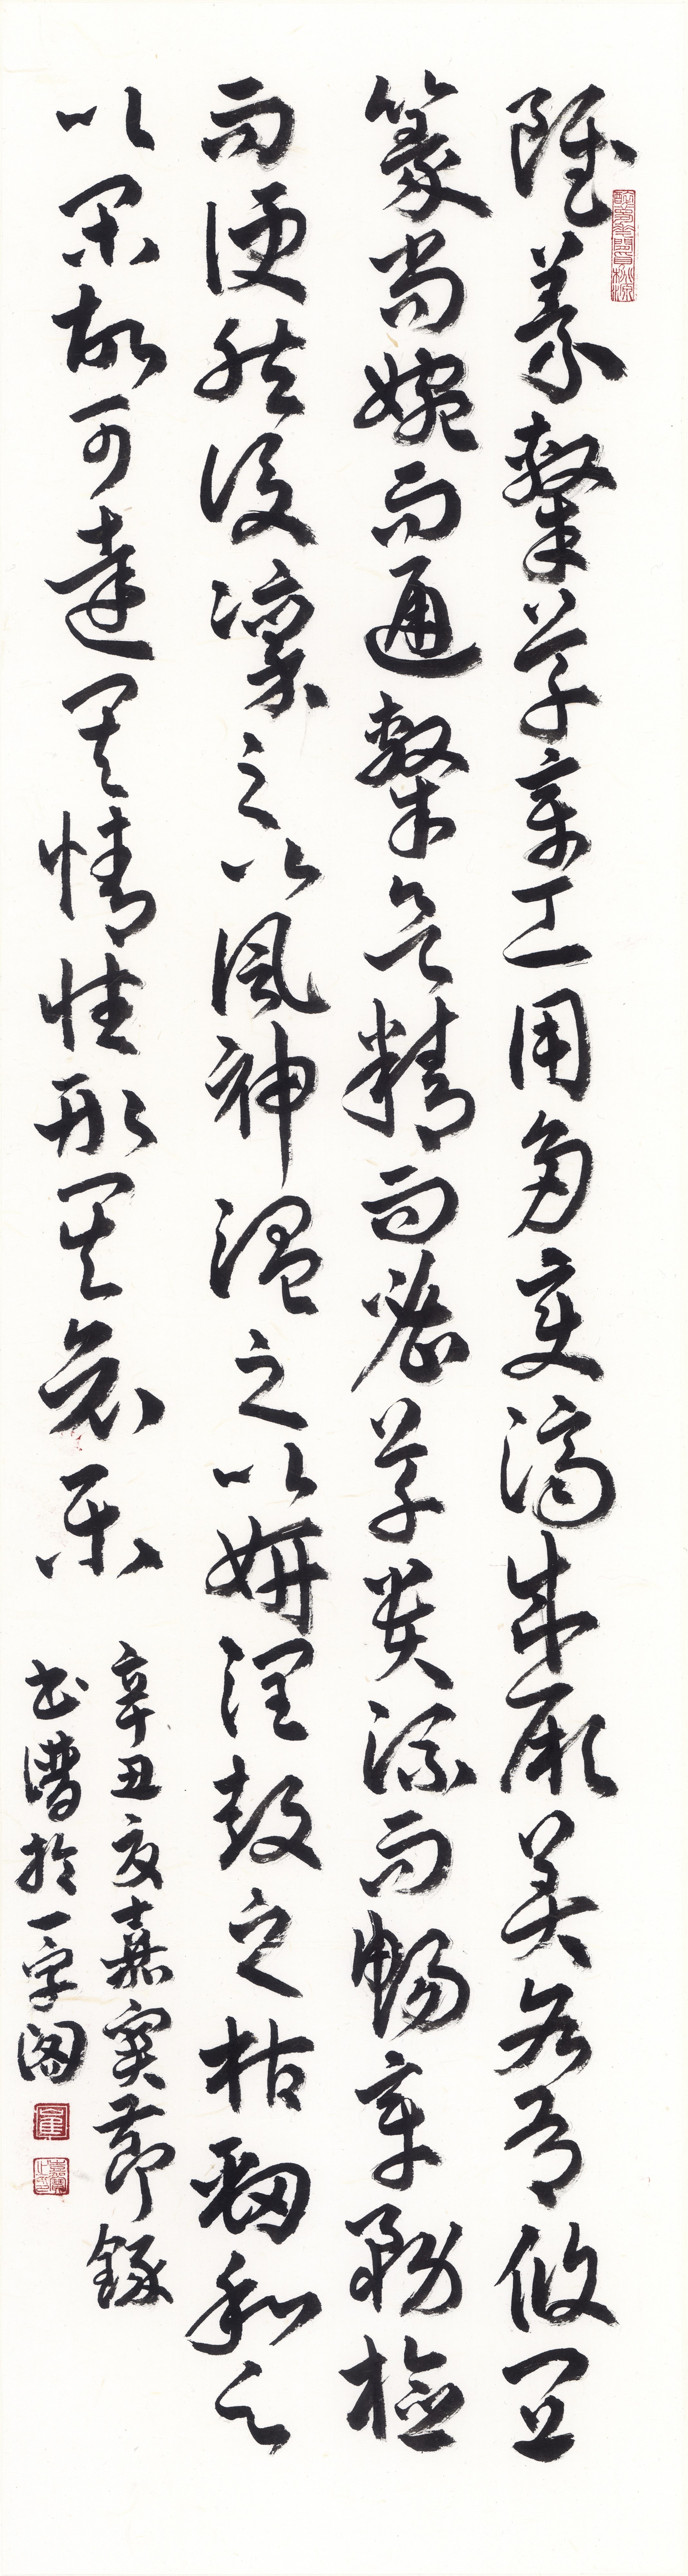 雖篆隸草章工用多變濟成厥美各有攸宜
篆尚婉而通隸欲精而密草貴流而暢章務檢
而便然後凜之以風神溫之以妍潤鼓之以枯勁和之
以閑故可達其情性形其哀樂
辛丑夏嘉寶節錄
書譜於一字閣